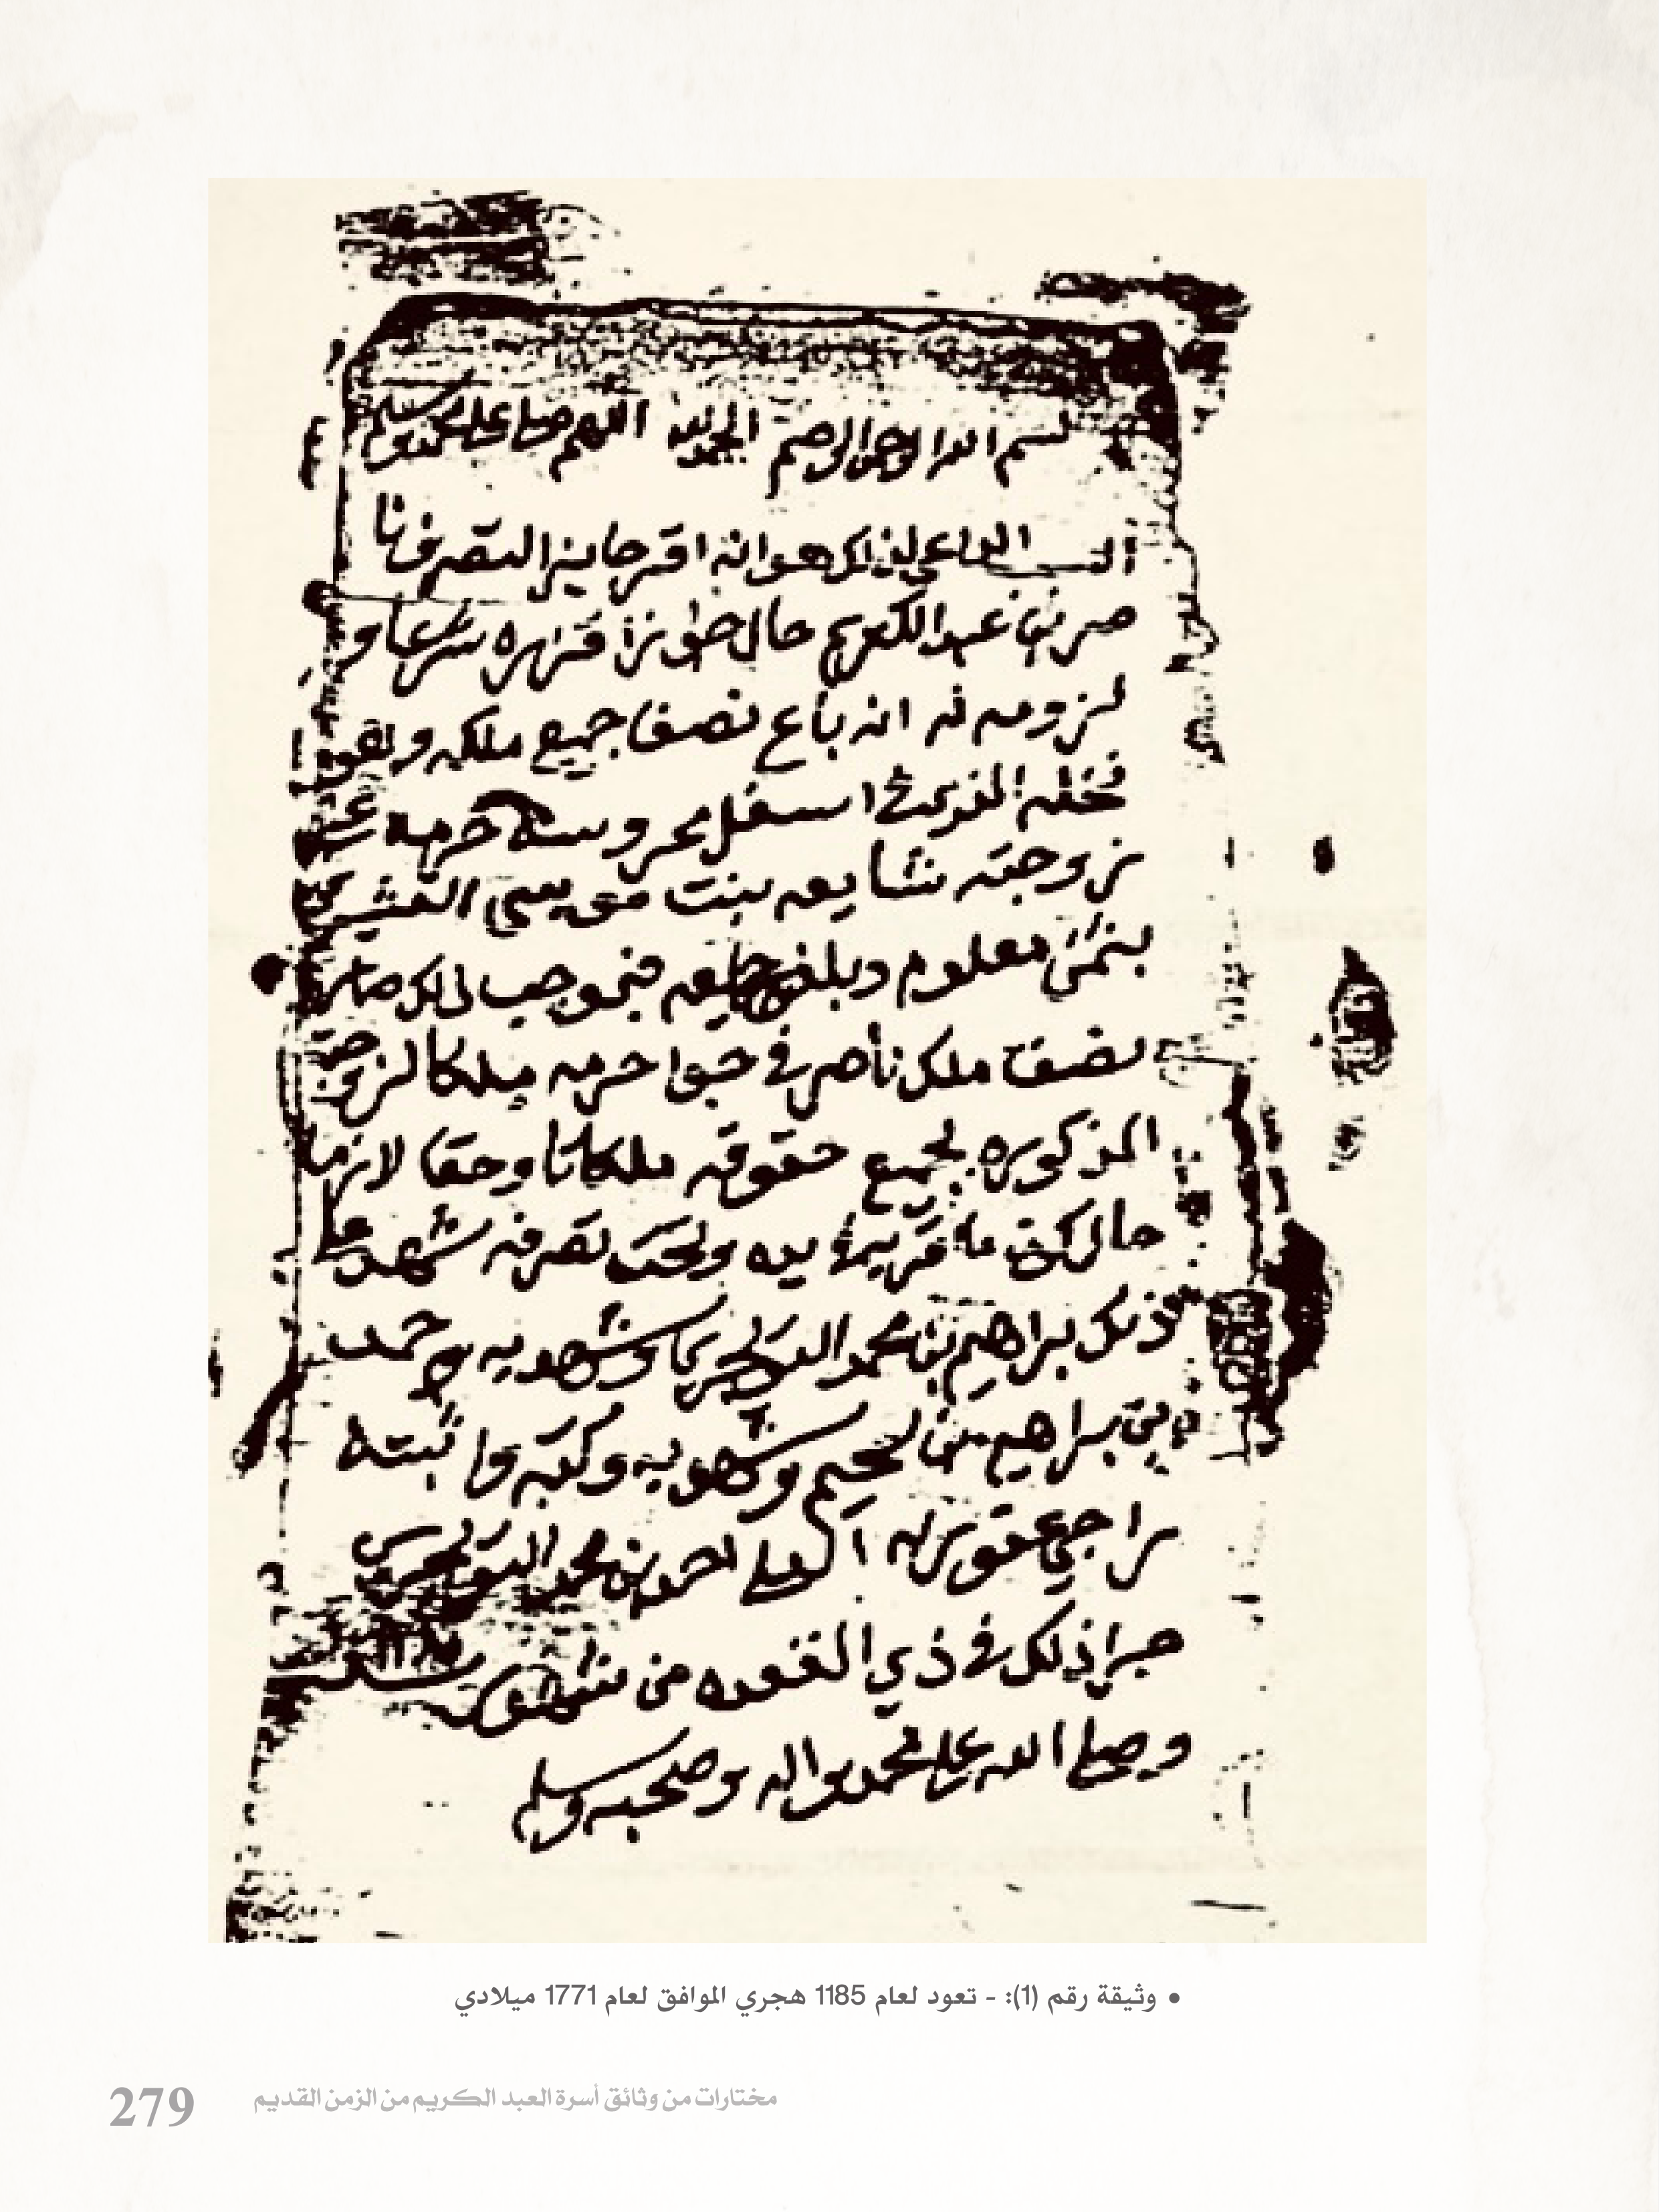 بسم الله الرحمن الرحيم الحمد لله اللهم صل على محمد وسلم
السبب الداعي لذلك هو انه اقر جايز التصرف نا
صر بن عبد الكريم حال جواز اقراره شرعا و
لزومه له انه باع نصف جميع ملكه وهو
نخله اسفل حرمه
زوجته شايعه بنت موسى
بثمن معلوم وبلغ فبموجب ذلك صار
نصف ملك ناصر في حرمه ملكا لزوجته
المذكوره بجميع حقوقه ملكا تاما وحقا لازما
حال كون ما يده وتحت تصرفه شهد على
ذلك براهيم بن محمد وشهد به حمد
بن براهيم بن وشهد به وكتبه واثبته
راجي عفو ربه احمد بن محمد
جرا ذلك في ذي القعده من شهور سنة
وصلى الله على محمد واله وصحبه وسلم
• وثيقة رقم (1): - تعود لعام 1185 هجري الموافق لعام 1771 ميلادي
مختارات من وثائق أسرة العبد الكريم من الزمن القديم 279